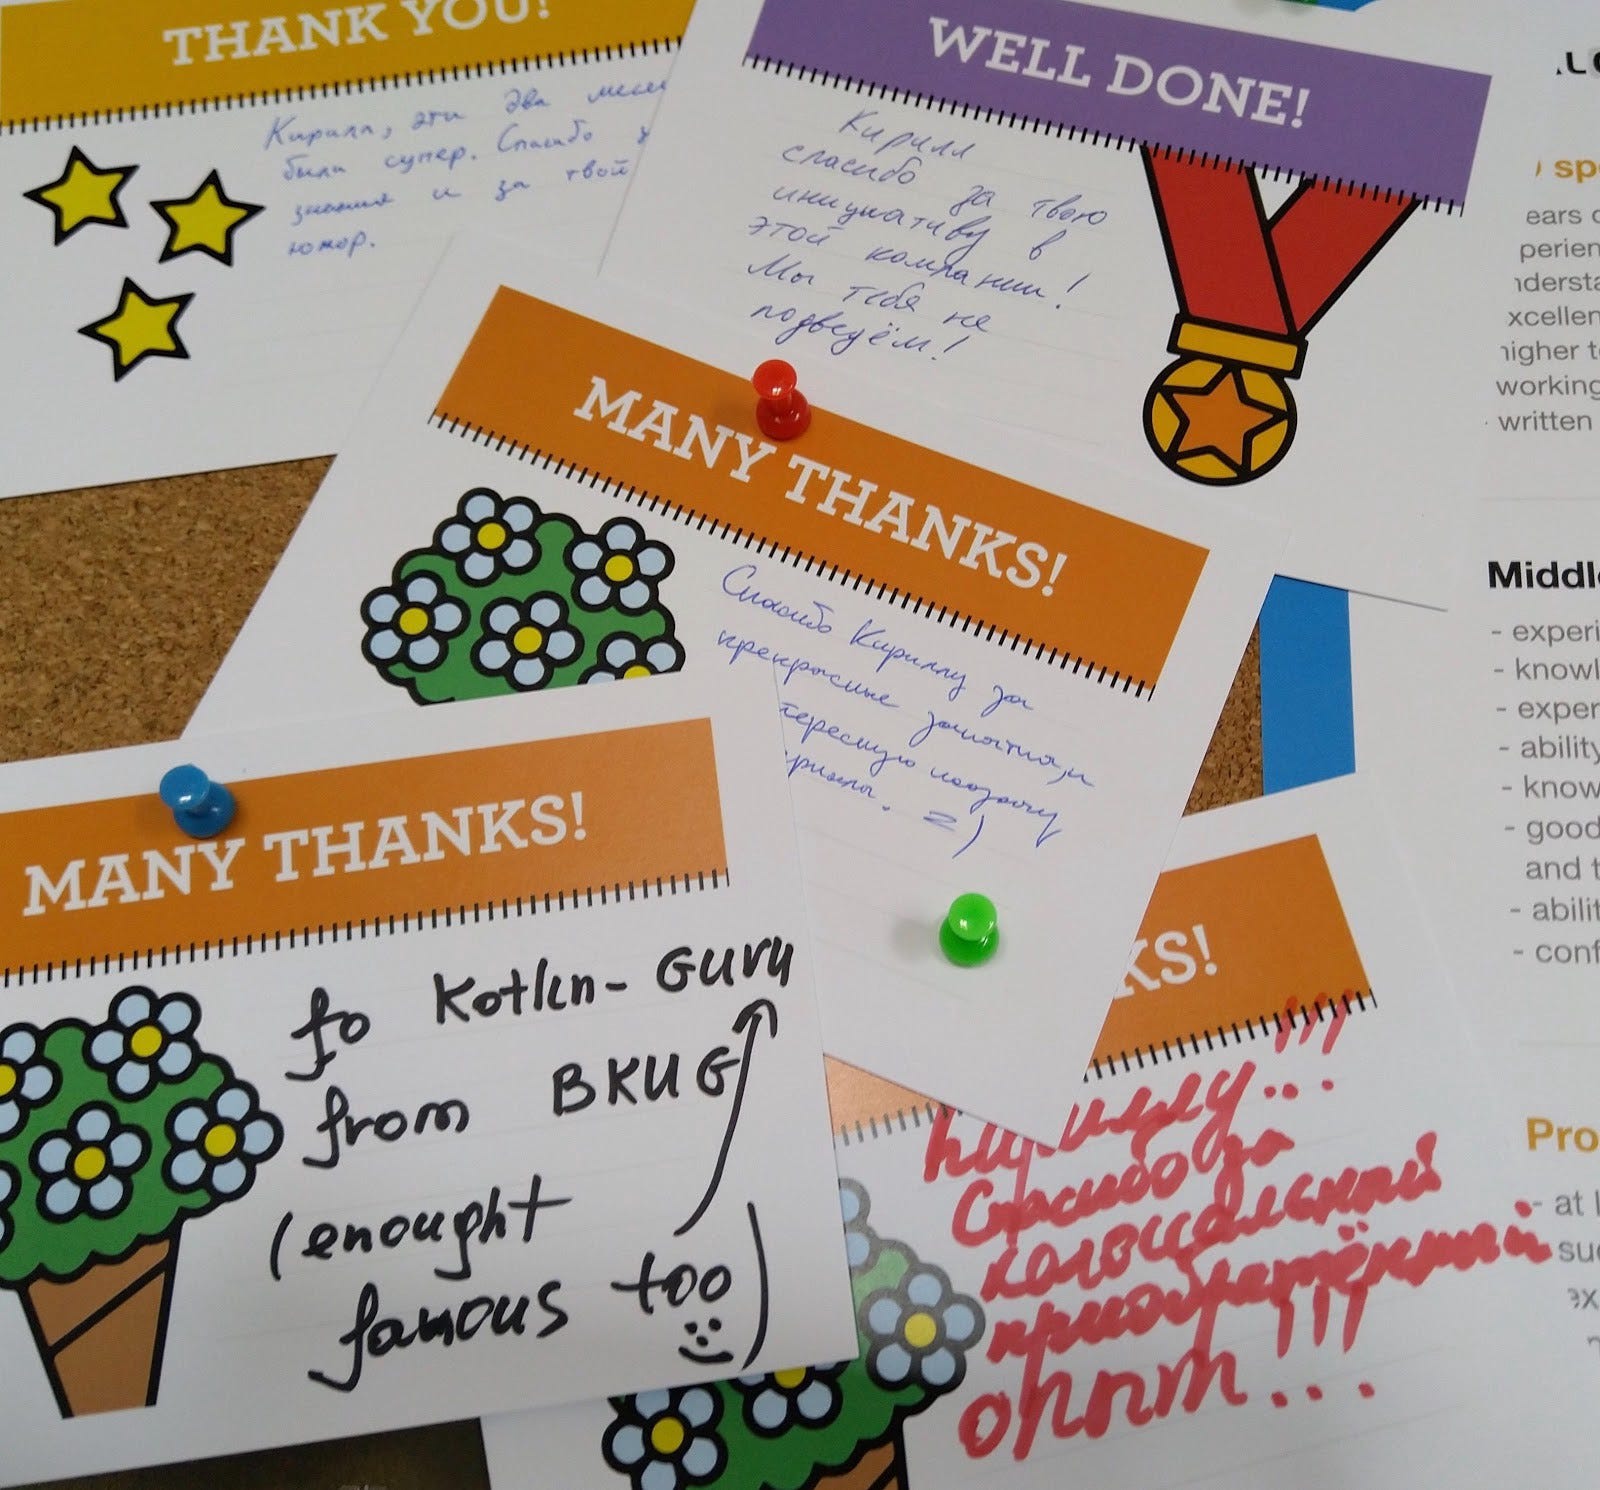 THANK YOU!
Кирилл, эти два
были супер. Спасибо
знания и за твой
юмор.
WELL DONE!
Кирилл
спасибо за твою
инициативу в
этой компании!
Мы тебя не
подведём!
MANY THANKS!
Спасибо Кириллу за
прекрасные занятия, и
подачу
=)
MANY THANKS!
to Kotlin-Guru
from BKUG
(enought
famous too
)
KS!
!!!
Кириллу...
Спасибо за
колоссальный
приобретённый
опыт...
!!!
Middl
- experi
- knowl
- exper
- ability
- know
- good
and t
- abilit
- conf
Pro
- at l
ears
perien
ndersta
xcellen
higher t
working
written